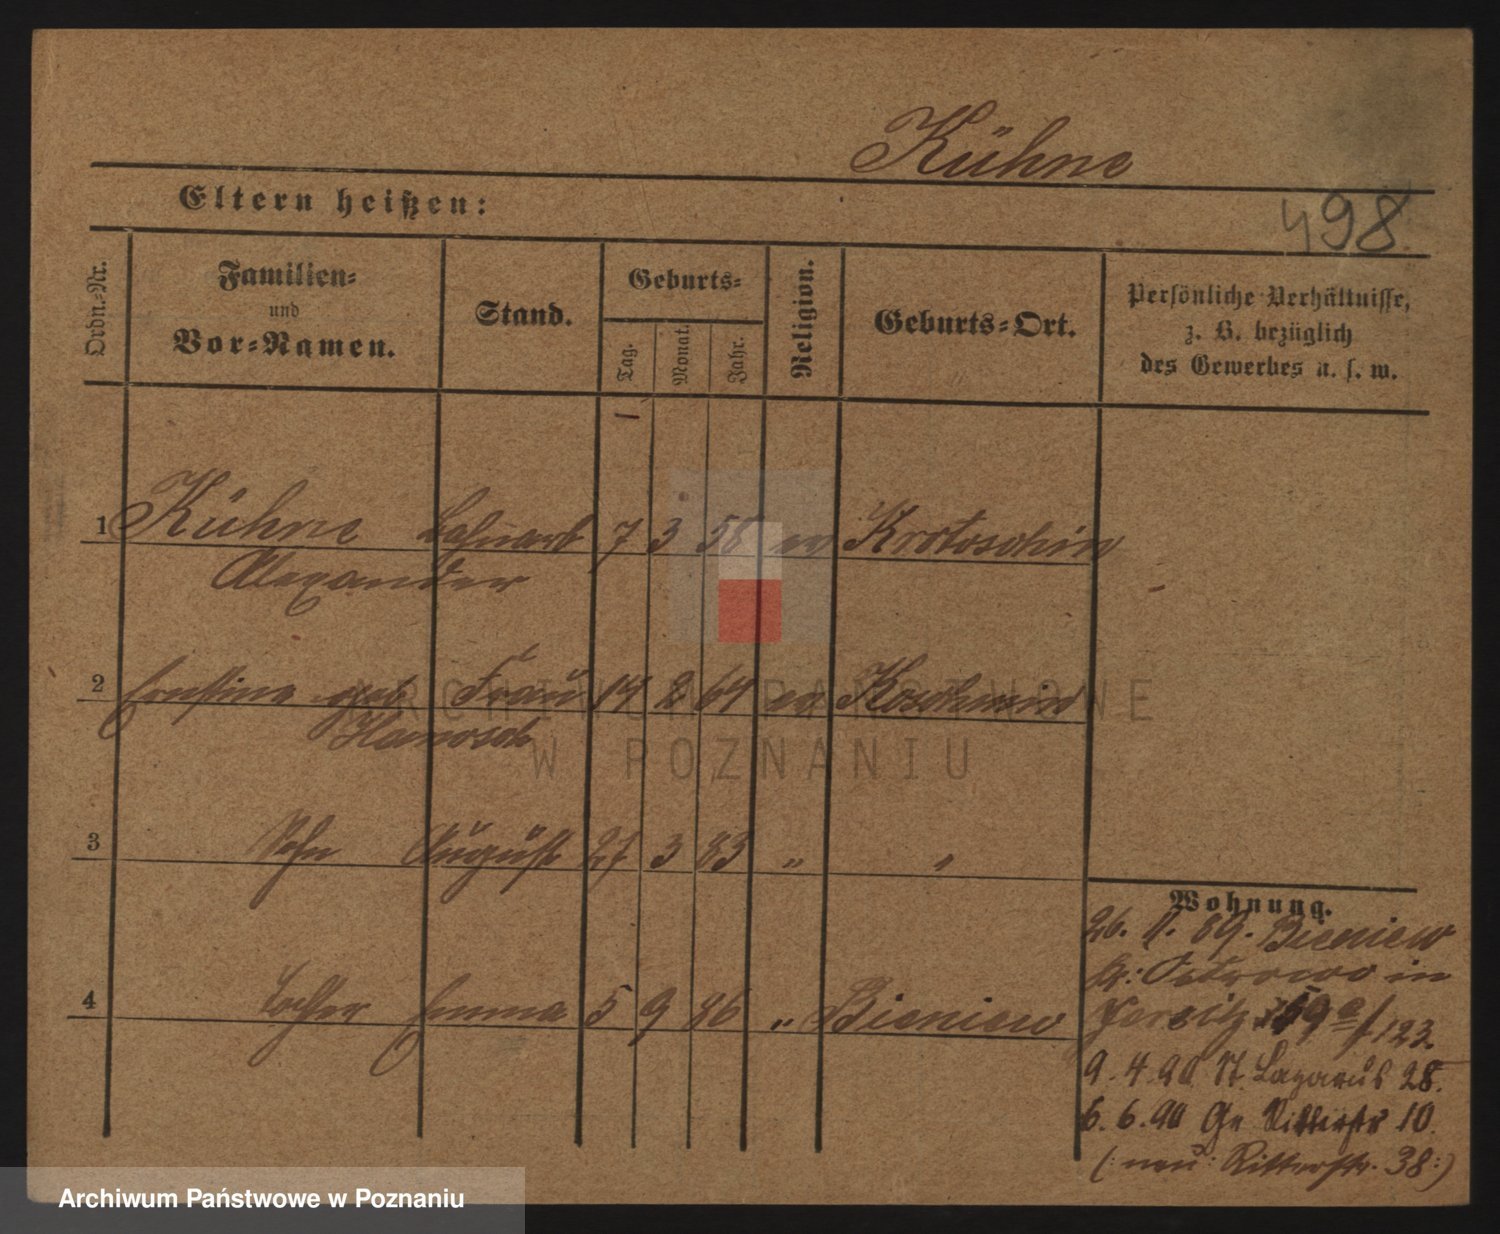 Kühne
Eltern heißen:
498
Ordn.-Nr.
Familien-
und
Vor-Namen.
Stand.
Geburts-
Tag.
Monat.
Jahr.
Religion.
Geburts-Ort.
Persönliche Verhältnisse,
z. B. bezüglich
des Gewerbes u. s. w.
1 Kühne 7 3 58 ev Krotoschin
Alexander
2 Ernstine geb Frau 14 2 64 ev Koschmin
3 Sohn August 27 3 83 " "
4 Tochter Emma 5 9 86 " Bieniew
Wohnung.
26. 11. 89. Bieniew
in
Jersitz 123.
9. 4. 90 St Lazarus 28.
6. 6. 90 Gr Ritterstr 10.
(: neu : Ritterstr. 38 :)
ARCHIWUM PAŃSTWOWE
W POZNANIU
Archiwum Państwowe w Poznaniu